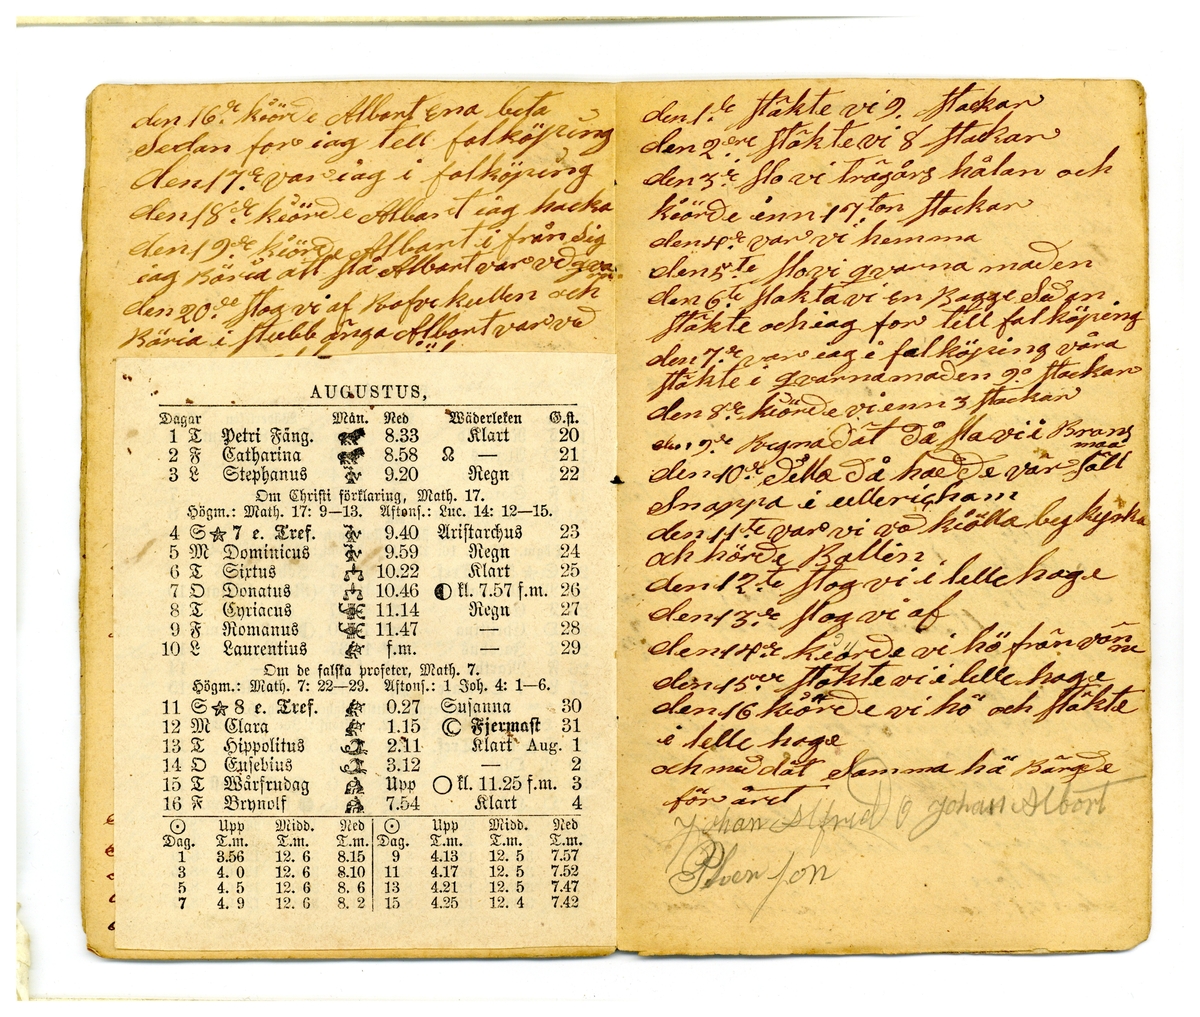 den 16de kiörde Albart ena beta
Sedan for iag tell falköping
den 17de var iag i falköping
den 18de kiörde Albart iag hacka
den 19de kiörde Albart i från Sig
iag Böria att slå Albart var ved
den 20de slog vi af Kullen och
Böria i stubb änga Albart var ved
AUGUSTUS,
Dagar Mån. Ned Wäderleken G.st.
1 T Petri Fäng. 8.33 Klart 20
2 F Catharina 8.58 ☊ — 21
3 L Stephanus 9.20 Regn 22
Om Christi förklaring, Math. 17.
Högm.: Math. 17: 9—13. Aftons.: Luc. 14: 12—15.
4 S ☆ 7 e. Tref. 9.40 Aristarchus 23
5 M Dominicus 9.59 Regn 24
6 T Sixtus 10.22 Klart 25
7 O Donatus 10.46 ◐ kl. 7.57 f.m. 26
8 T Cyriacus 11.14 Regn 27
9 F Romanus 11.47 — 28
10 L Laurentius f.m. — 29
Om de falska profeter, Math. 7.
Högm.: Math. 7: 22—29. Aftons.: 1 Joh. 4: 1—6.
11 S ☆ 8 e. Tref. 0.27 Susanna 30
12 M Clara 1.15 Fjermast 31
13 T Hippolitus 2.11 Klart Aug. 1
14 O Eusebius 3.12 — 2
15 T Wårfrudag Upp ○ kl. 11.25 f.m. 3
16 F Brynolf 7.54 Klart 4
☉ Upp Midd. Ned ☉ Upp Midd. Ned
Dag. T.m. T.m. T.m. Dag. T.m. T.m. T.m.
1 3.56 12. 6 8.15 9 4.13 12. 5 7.57
3 4. 0 12. 6 8.10 11 4.17 12. 5 7.52
5 4. 5 12. 6 8. 6 13 4.21 12. 5 7.47
7 4. 9 12. 6 8. 2 15 4.25 12. 4 7.42
den 1de stäkte vi 9 stackar
den 2dre stäkte vi 8 stackar
den 3de slo vi trägårs hålan och
kiörde inn 17 ton stackar
den 4de var vi hemma
den 5te slo vi qvarna maden
den 6te stäkta vi en Bagge Sedan
stäkte och iag for tell falköping
den 7de var iag i falköping våra
stäkte i qvarnamaden 9a stackar
den 8de kiörde vi enn 3 stackar
den 9de Regna dät då sla vi i
den 10de Sella då hade var fält
Snappa i ullericham
den 11te var vi vd kiölla beg kyrka
och hörde Ballin
den 12te slog vi i lelle hage
den 13de slog vi af
den 14de kiörde vi hö från
den 15de stäkte vi i lelle hage
den 16 kiörde vi hö och stäkte
i lelle hage
och med dät Samma hä Bärgde
för året
Johan Alfred O Johan Albort